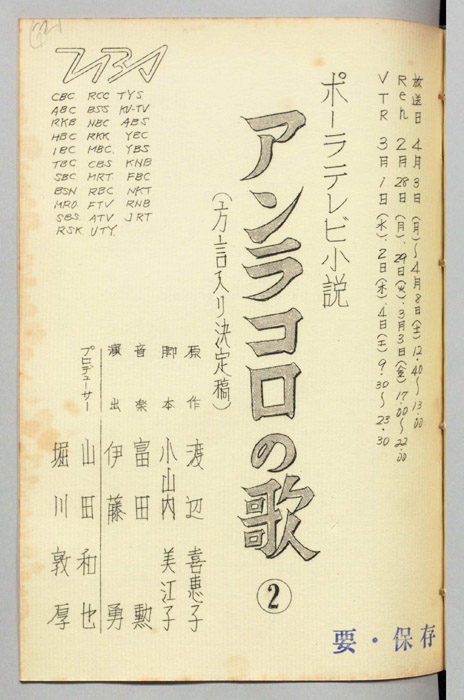 放送日 4月3日(月)〜4月8日(土)12:40〜13:00
Reh 2月28日(月)、29日(火)、3月3日(金)17:00〜22:00
VTR 3月1日(水)、2日(木)、4日(土)9:30〜23:30
ポーラテレビ小説
アンラコロの歌 ②
(方言入り決定稿)
原作 渡辺喜恵子
脚本 小山内美江子
音楽 富田勲
演出 伊藤勇
プロデューサー 山田和也
堀川敦厚
TBS
CBC RCC TYS
ABC BSS KU-TV
RKB NBC ABS
HBC RKK YBC
IBC MBC YBS
TBC CBS KNB
SBC MRT FBC
BSN RBC NKT
MRO FTV RNB
SBS ATV JRT
RSK UTY
要・保存